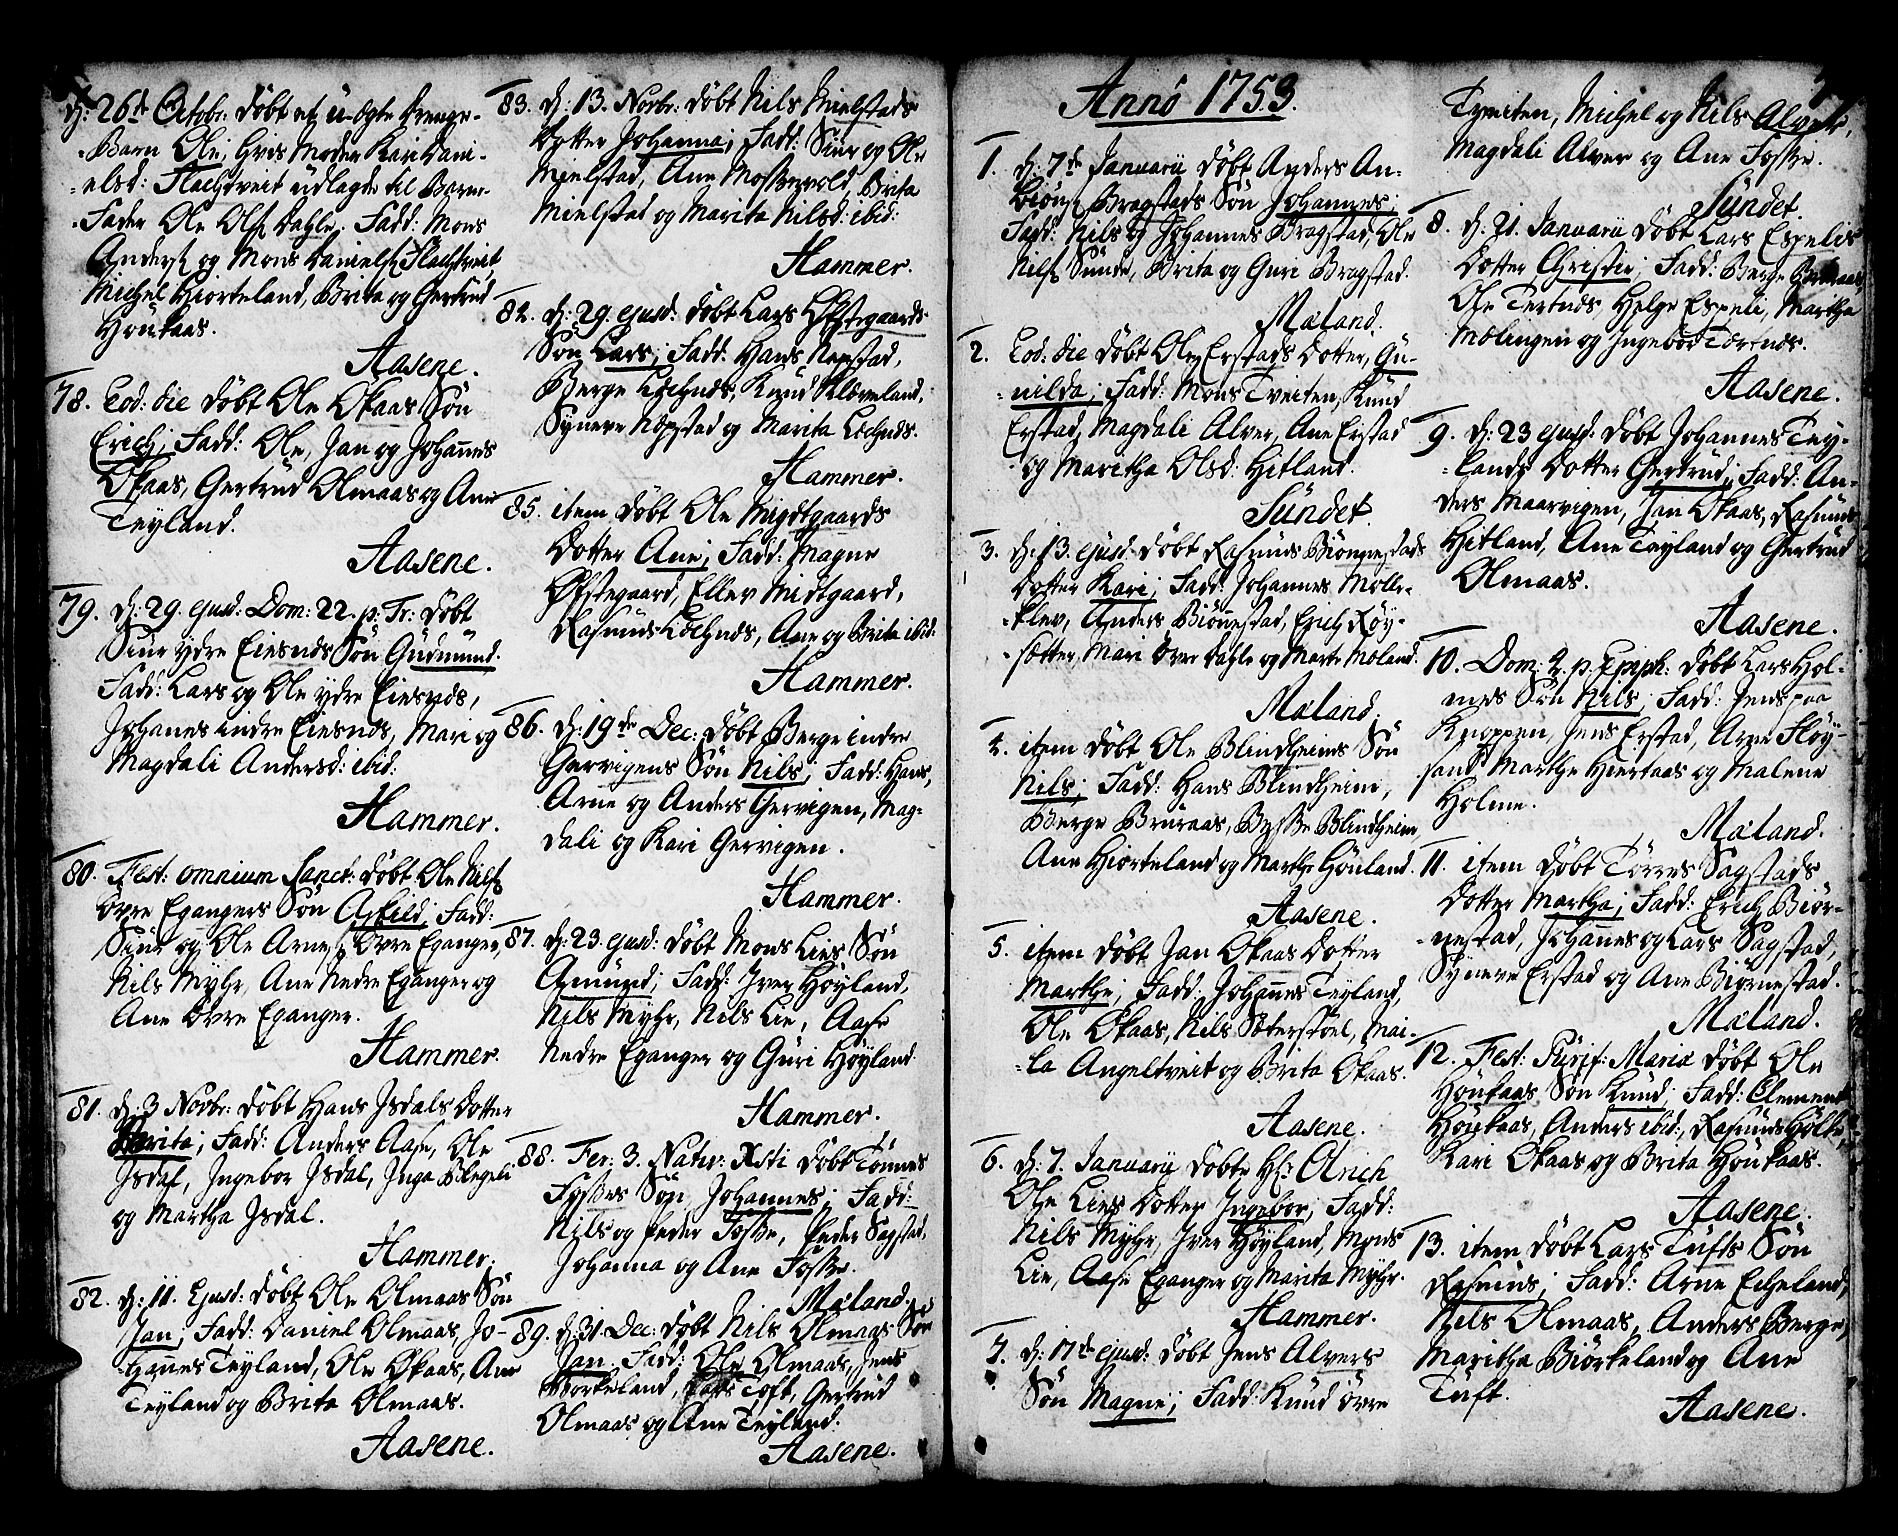 d: 26de Octobr: døbt et u-ægte Drenge-
Barn Ole; hvis Moder Kari Dani-
elsd: Flachtveit udlagde til Barne-
Fader Ole Ols. Dahle. Fadd: Mons
Anders. og Mons Daniels. Flachtveit,
Michel Hiorteland, Brita og Gertrud
Houkaas.
Aasene.
78. Eod: die døbt Ole Okaas Søn
Erich; Fadd: Ole, Jan og Johañes
Okaas, Gertrud Olmaas og Ane
Teyland.
Aasene.
79. d: 29. ejusd: Dom: 22. p. Tr: døbt
Siur ydre Eiesnds Søn Gudmund.
Fadd: Lars og Ole ydre Eiesnds,
Johanes indre Eiesnds, Mari og
Magdali Andersd: ibid:
Hammer.
80. Fest: omnium Sanct: døbt Ole Nils.
øvre Egangers Søn Askild; Fadd:
Siur og Ole Arnes. øvre Eganger,
Nils Myhr, Ane Nedre Eganger og
Ane øvre Eganger.
Hammer.
81. d: 3 Novbr: døbt Hans Isdals Dotter
Marita; Fadd: Anders Aase, Ole
Isdal, Ingebor Isdal, Inga Blegeli
og Martha Isdal.
Hammer.
82. d: 11. Ejusd: døbt Ole Olmaas Søn
Jan; Fadd: Daniel Olmaas, Jo-
hañes Teyland, Ole Okaas, Ane
Teyland og Brita Olmaas.
Aasene.
83. d: 13. Novbr: døbt Nils Mielstads
Dotter Johanna; Fadd: Siur og Ole
Mielstad, Ane Mossevold, Brita
Mielstad og Marita Nilsd: ibid:
Hammer.
82. d: 29. ejusd: døbt Lars Øfstegaards
Søn Lars; Fadd: Hans Nøpstad,
Berge Lochnds, Knud Kløveland,
Syneve Nøpstad og Marita Lochnds.
Hammer.
85. item døbt Ole Migdtgaards
Dotter Ane; Fadd: Magne
Øfstegaard, Ellev Midtgaard,
Rasmus Lochnds, Ane og Brita ibid:
Hammer.
86. d: 19de Dec: døbt Berge indre
Gervigens Søn Nils; Fadd: Hans,
Arne og Anders Gervigen, Mag-
dali og Kari Gervigen.
Hammer.
87. d: 23. ejusd: døbt Mons Lies Søn
Amund; Fadd: Iver Høyland,
Nils Myhr, Nils Lie, Aase
Nedre Eganger og Guri Høyland
Hammer.
88. Fer: 3. Nativ: Xsti døbt Tønnes
Fosses Søn, Johannes; Fadd:
Nils og Peder Fosse, Peder Sagstad,
Johanna og Ane Fosse.
Mæland.
89. d: 31 Dec: døbt Nils Olmaas Søn
Jan. Fadd: Ole Olmaas, Jens
Biorkeland, Lars Toft, Gertrud
Olmaas og Ane Teyland.
Aasene.
Anno 1753.
1. d: 7de Januarii døbt Anders An-
biøns. Bragstads Søn Johannes;
Fadd: Nils og Johannes Bragstad, Ole
Nils. Sunde, Brita og Guri Bragstad.
Mæland.
2. Eod: die døbt Ole Erstads Dotter, Gu-
nilda; Fadd: Mons Tveiten, Knud
Erstad, Magdali Alver, Ane Erstad
og Maritha Olsd: Hitland.
Sundet.
3. d: 13. ejusd: døbt Rasmus Biønnestads
Dotter Kari; Fadd: Johannes Molle-
klev, Anders Biønnestad, Erich Røy-
sætter, Mari øvre Dahle og Marte Moland.
Mæland.
4. item døbt Ole Blindheims Søn
Nils; Fadd: Hans Blindheim,
Berge Bruraas, Bysse Blindheim,
Ane Hiorteland og Marthe Hopland.
Aasene.
5. item døbt Jan Okaas Dotter
Marthe; Fadd: Johañes Teyland,
Ole Okaas, Nils Sæterstøel, Mai-
la Angeltveit og Brita Okaas.
Aasene.
6. d: 7. Januarii døbte Hr. Ulrich
Ole Lies Dotter Ingebor; Fadd:
Nils Myhr, Iver Høyland, Mons
Lie, Aase Eganger og Marita Myhr.
Hammer.
7. d: 17de ejusd: døbt Jens Alvers
Søn Magne; Fadd: Knud øvre
Tveiten, Michel og Nils Alver,
Magdali Alver og Ane Fosse.
Sundet.
8. d: 21. Januarii døbt Lars Espelis
Dotter Christie; Fadd: Berge
Ole Tertnds, Helge Espeli, Martha
Mælingen og Ingebor Tertnds.
Aasene.
9. d: 23 ejusd: døbt Johannes Tey-
lands Dotter Gertrud; Fadd: An-
ders Maarvigen, Jan Okaas, Rasmus
Hitland, Ane Teyland og Gertrud
Olmaas.
Aasene.
10. Dom: 2. p. Epiph: døbt Lars Hol-
mes Søn Nils; Fadd: Jens paa
Knappen, Jens Erstad, Arne Fløy-
sand, Marthe Hiertaas og Malene
Holme.
Mæland.
11. item døbt Tørres Sagstads
Dotter Martha; Fadd: Erich Biør-
nestad, Johañes og Lars Sagstad,
Syneve Erstad og Ane Biørnestad.
Mæland.
12. Fest: Purif: Mariæ døbt Ole
Houkaas Søn Knud; Fadd: Clement
Houkaas, Anders ibid:, Rasmus Holte,
Kari Okaas og Brita Houkaas.
Aasene.
13. item døbt Lars Tufts Søn
Rasmus; Fadd: Arne Echeland,
Nils Olmaas, Anders Berge,
Maritha Biørkeland og Ane
Tuft.
Aasene.